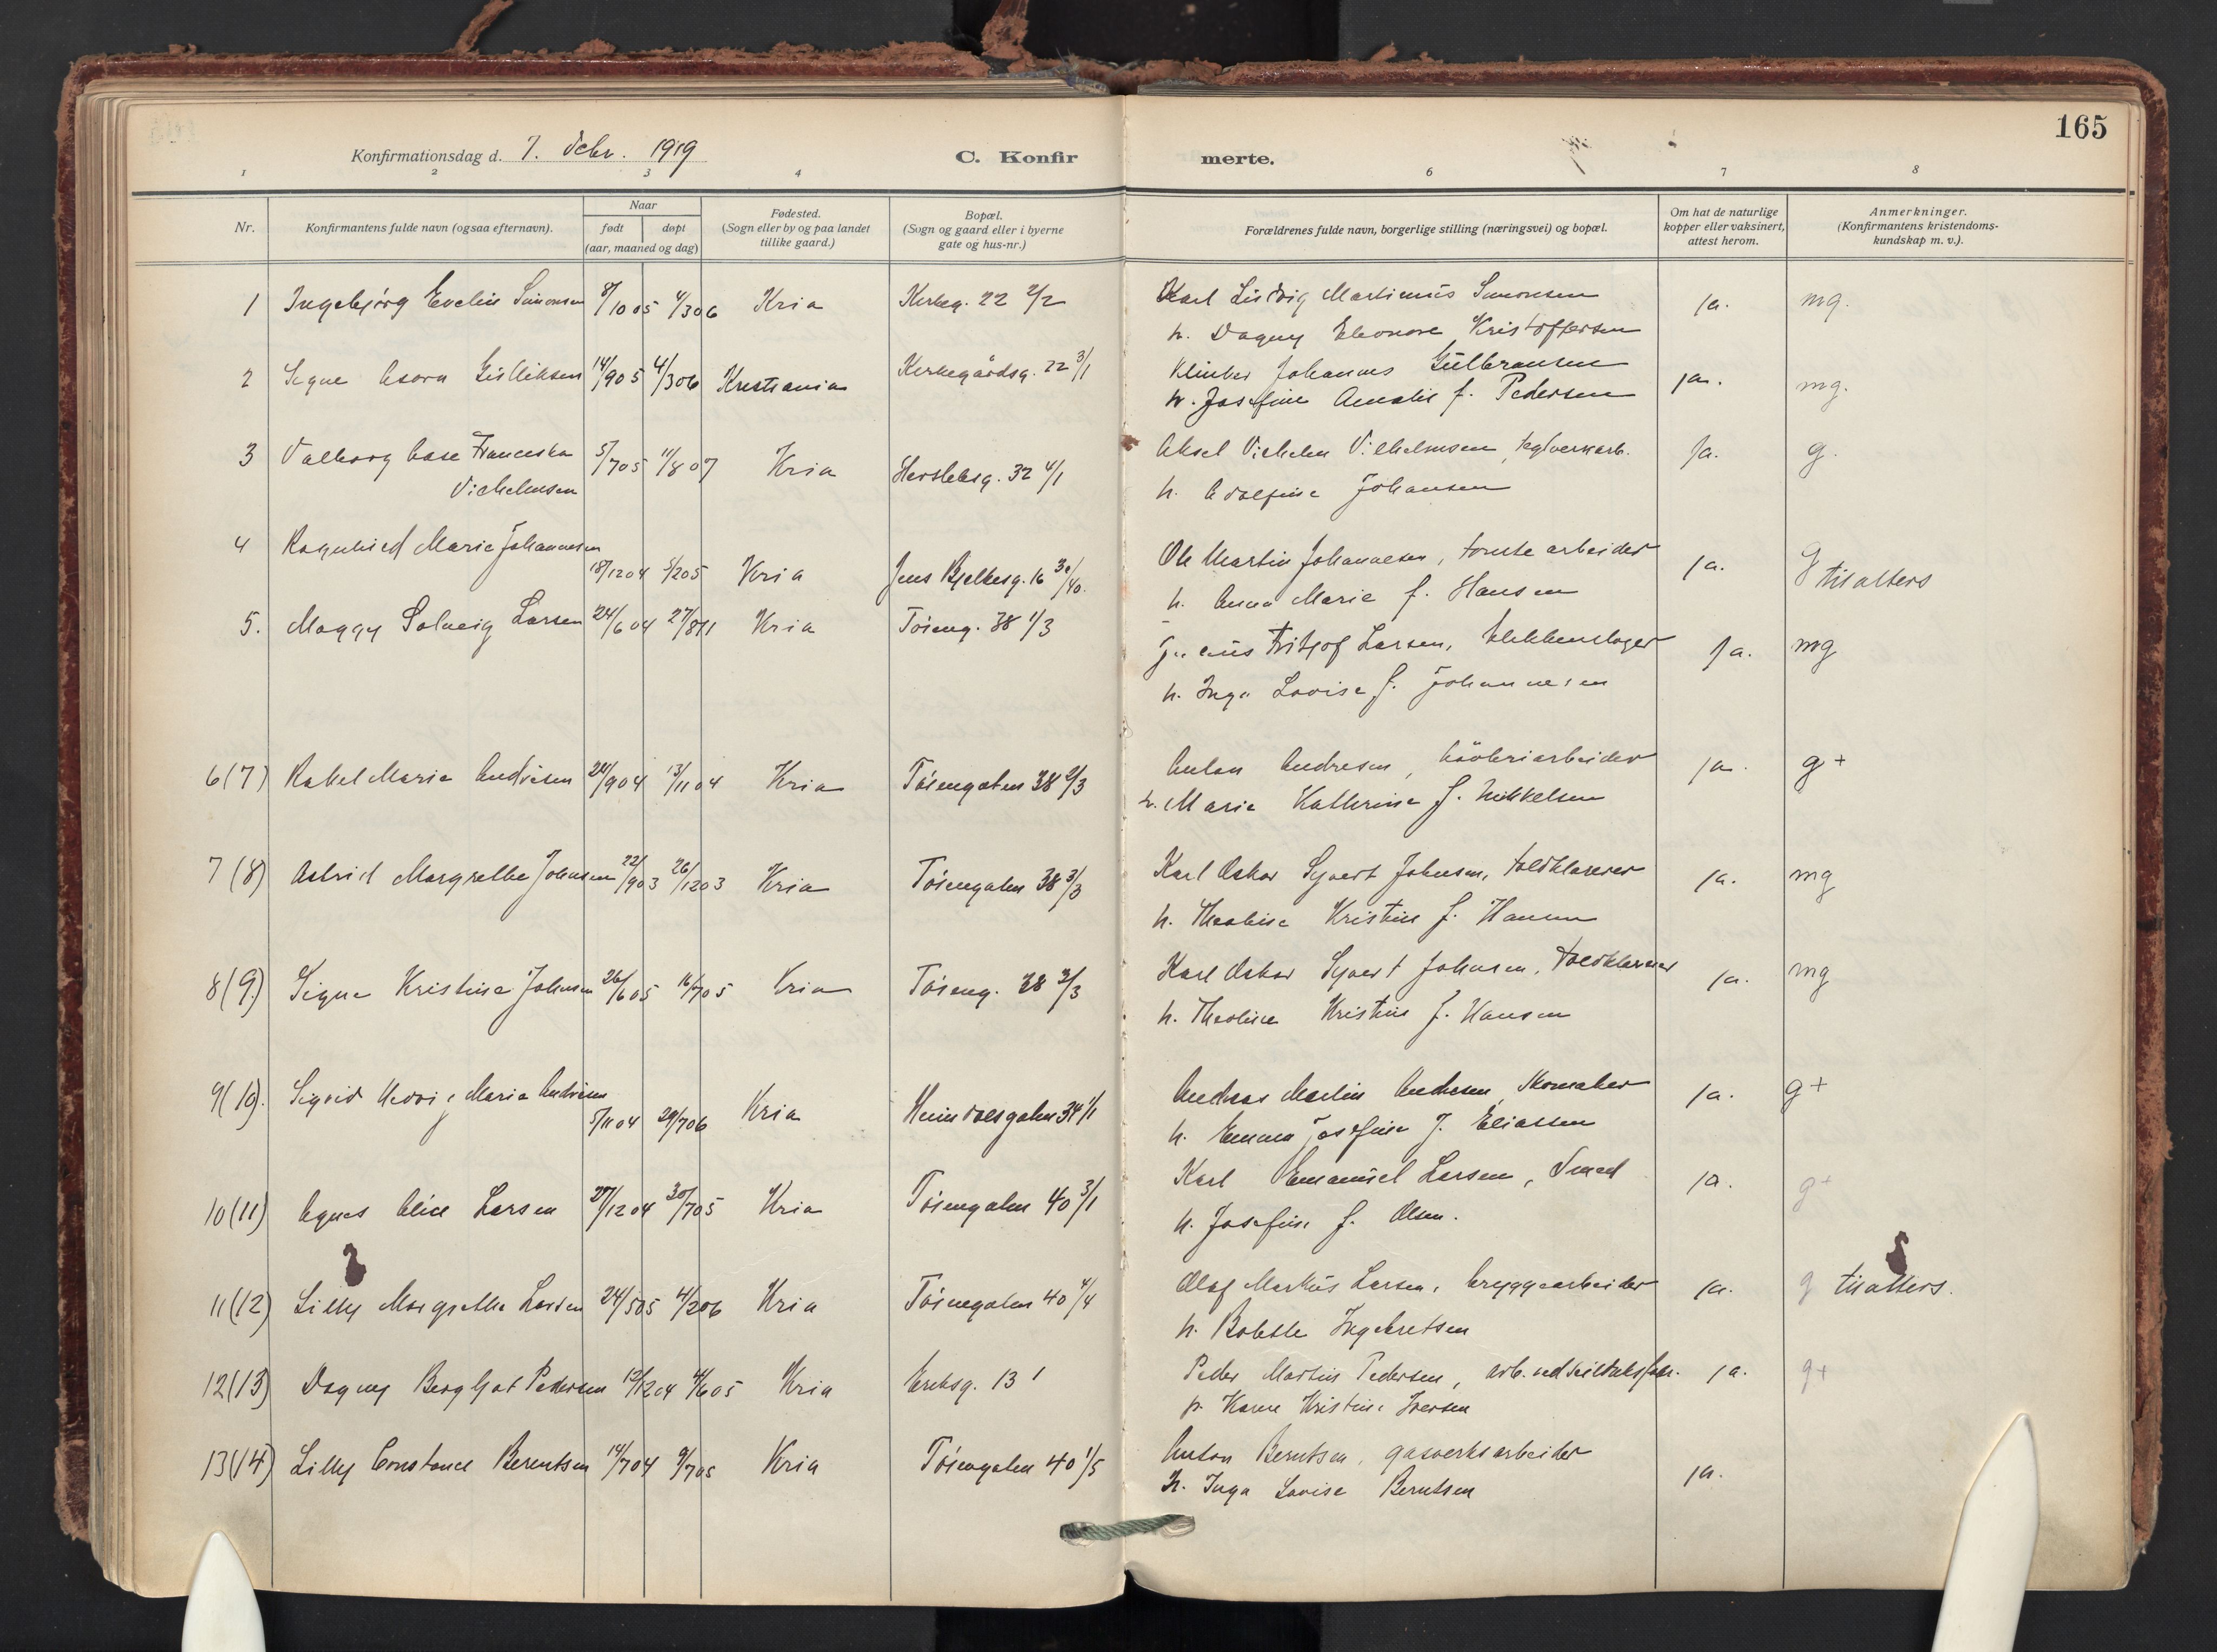 165
Konfirmationsdag d. 7. Febr. 1919
C. Konfir
merte.
1 2 3 4 6 7 8
Nr.
Konfirmantens fulde navn (ogsaa efternavn).
Naar
født døpt
(aar, maaned og dag)
Fødested.
(Sogn eller by og paa landet
tillike gaard.)
Bopæl.
(Sogn og gaard eller i byerne
gate og hus-nr.)
Forældrenes fulde navn, borgerlige stilling (næringsvei) og bopæl.
Om hat de naturlige
kopper eller vaksinert,
attest herom.
Anmerkninger.
(Konfirmantens kristendoms-
kundskap m. v.).
1 Ingebjørg Evelin Simonsen 8/10 05 4/3 06 Kria Kirkeg. 22 2/2 Karl Ludvig Martinius Simonsen ja. mg.
h. Dagny Eleonore Kristoffersen
2 Signe 14/9 05 4/3 06 Kristiania Kirkegårdsg. 22 3/1 Johannes Gulbransen ja. mg.
h. Josefine Amalie f. Pedersen
3 Valborg Aase Franceska 5/7 05 11/8 07 Kria Herslebsg. 32 4/1 Aksel Vilhelm Vilhelmsen, teglverksarb. ja. g.
Vilhelmsen
h. Adolfine Johansen
4 Ragnhild Marie Johannesen 18/12 04 5/2 05 Kria Jens Bjelkesg. 16 Ole Martin Johannesen, tomtearbeider ja. g til alters
h. Anna Marie f. Hansen
5. Maggy Solveig Larsen 24/6 04 27/8 11 Kria Tøieng. 38 1/3 Fritjof Larsen, blikkenslager ja. mg
h. Inga Lovise f. Johannesen
6(7) Rakel Marie Andresen 24/9 04 13/11 04 Kria Tøiengaten 38 2/3 Anton Andresen, ja. g+
h. Marie Kathrine f. Mikkelsen
7(8) Astrid Margrethe Johnsen 22/9 03 26/12 03 Kria Tøiengaten 38 3/3 Karl Oskar Syvert Johnsen, toldklarerer ja. mg
h. Theoline Kristine f. Hansen
8(9.) Signe Kristine Johnsen 26/6 05 16/7 05 Kria Tøieng. 38 3/3 Karl Oskar Syvert Johnsen, toldklarerer ja. mg
h. Theoline Kristine f. Hansen
9(10). Sigrid Hedvig Marie Andresen 5/11 04 29/7 06 Kria Heimdalsgaten 34 1/1 Andreas Martin Andresen, Skomaker ja. g+
h. Emma Josefine f. Eliassen
10(11) Agnes Alice Larsen 27/12 04 30/7 05 Kria Tøiengaten 40 3/1 Karl Emanuel Larsen, Smed ja. g+
h. Josefine f. Olsen.
11(12) Lilly Margrethe Larsen 24/5 05 4/2 06 Kria Tøiengaten 40 4/4 Olaf Markus Larsen, bryggearbeider ja. g til alters.
h. Bolette Ingebretsen
12(13) Dagny Bergljot Pedersen 12/12 04 4/6 05 Kria Eriksg. 13 1 Peder Martin Pedersen, arb. ved seildugsfabr. ja. g+
h. Karen Kristine Iversen
13(14) Lilly Constance Berentsen 14/7 04 9/7 05 Kria Tøiengaten 40 1/5 Anton Berntsen, gasverksarbeider ja.
h. Inga Lovise Berntsen